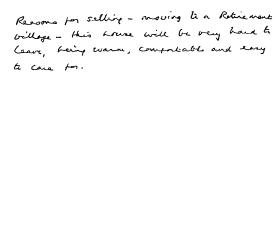 Reasons for selling - moving to a Retirement
village - this house will be very hard to
leave, being warm, comfortable and easy
to care for.